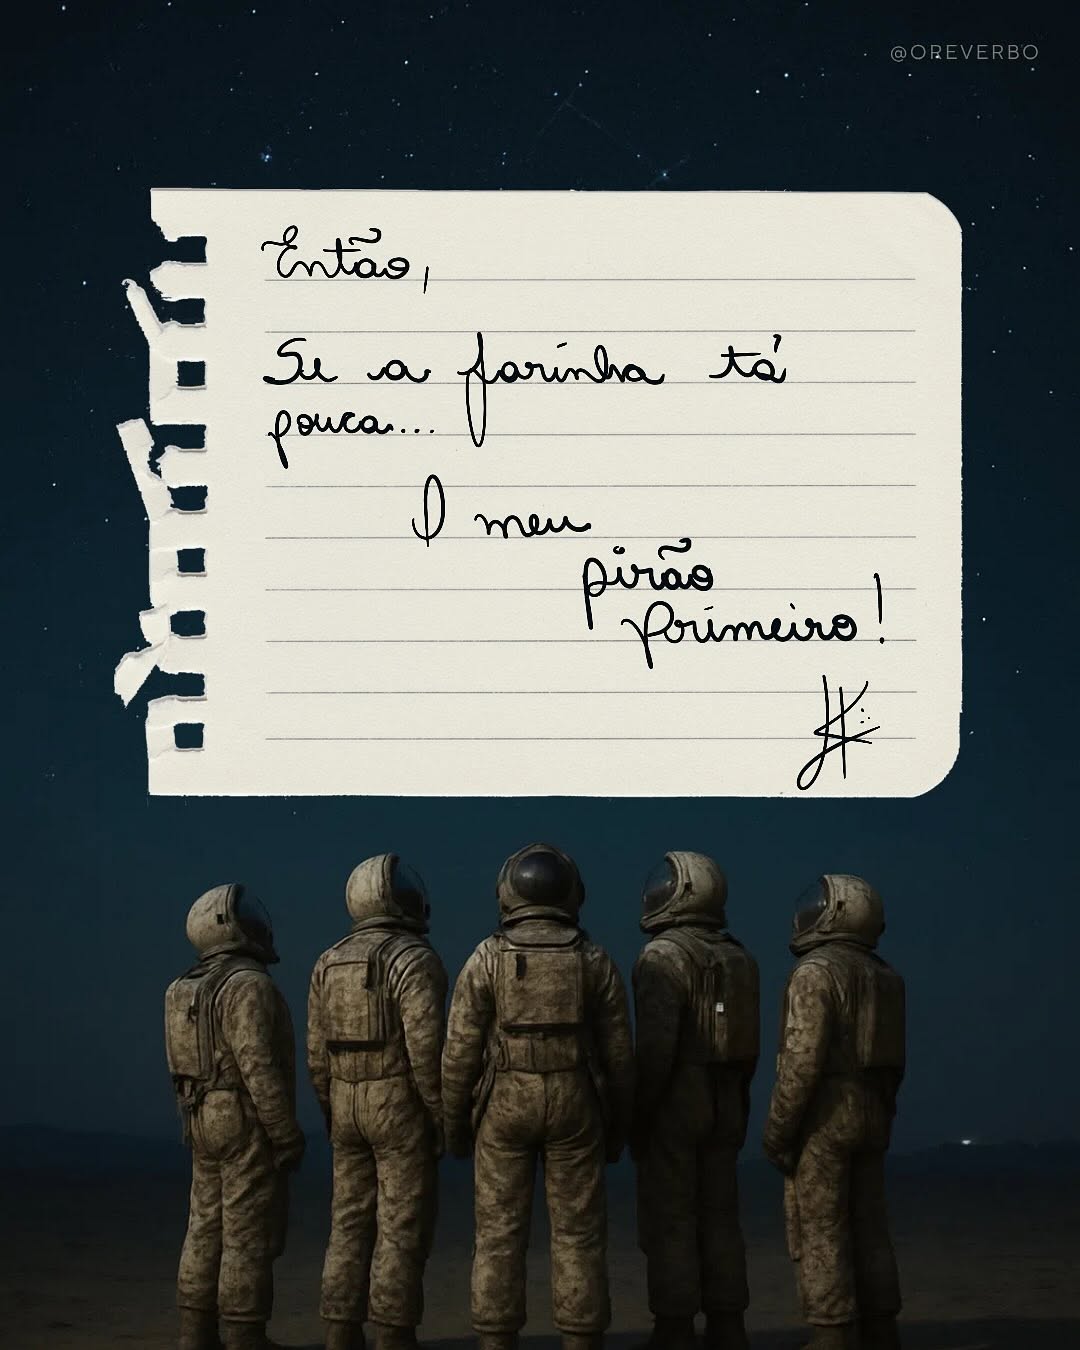 @OREVERBO
Então,
Se a farinha tá
pouca...
O meu
pirão
primeiro!